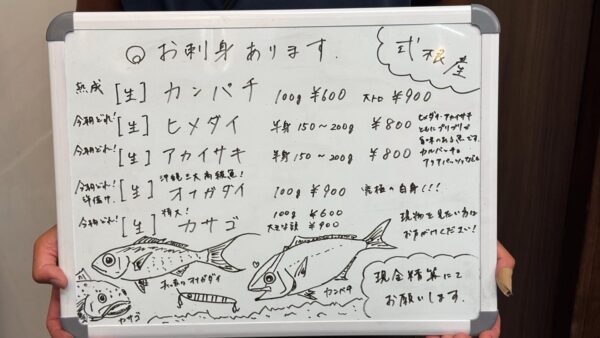 お刺身あります.
式根産
熟成 [生] カンパチ 100g ¥600 大トロ ¥900
今朝どれ! [生] ヒメダイ 半身 150~200g ¥800
今朝どれ! [生] アカイサキ 半身 150~200g ¥800
ヒメダイ・アカイサキ
ともにプリプリが
旨味のある魚です。
カルパッチョ
アクアパッツァなども
沖縄三大高級魚!
今朝どれ! [生] オナガダイ 100g ¥900 究極の白身!!!
特大!
今朝どれ! [生] カサゴ 100g ¥600
大きな頭 ¥900
現物を見たい方は
お声がけください!
オナガダイ
カンパチ
カサゴ
現金精算にて
お願いします.